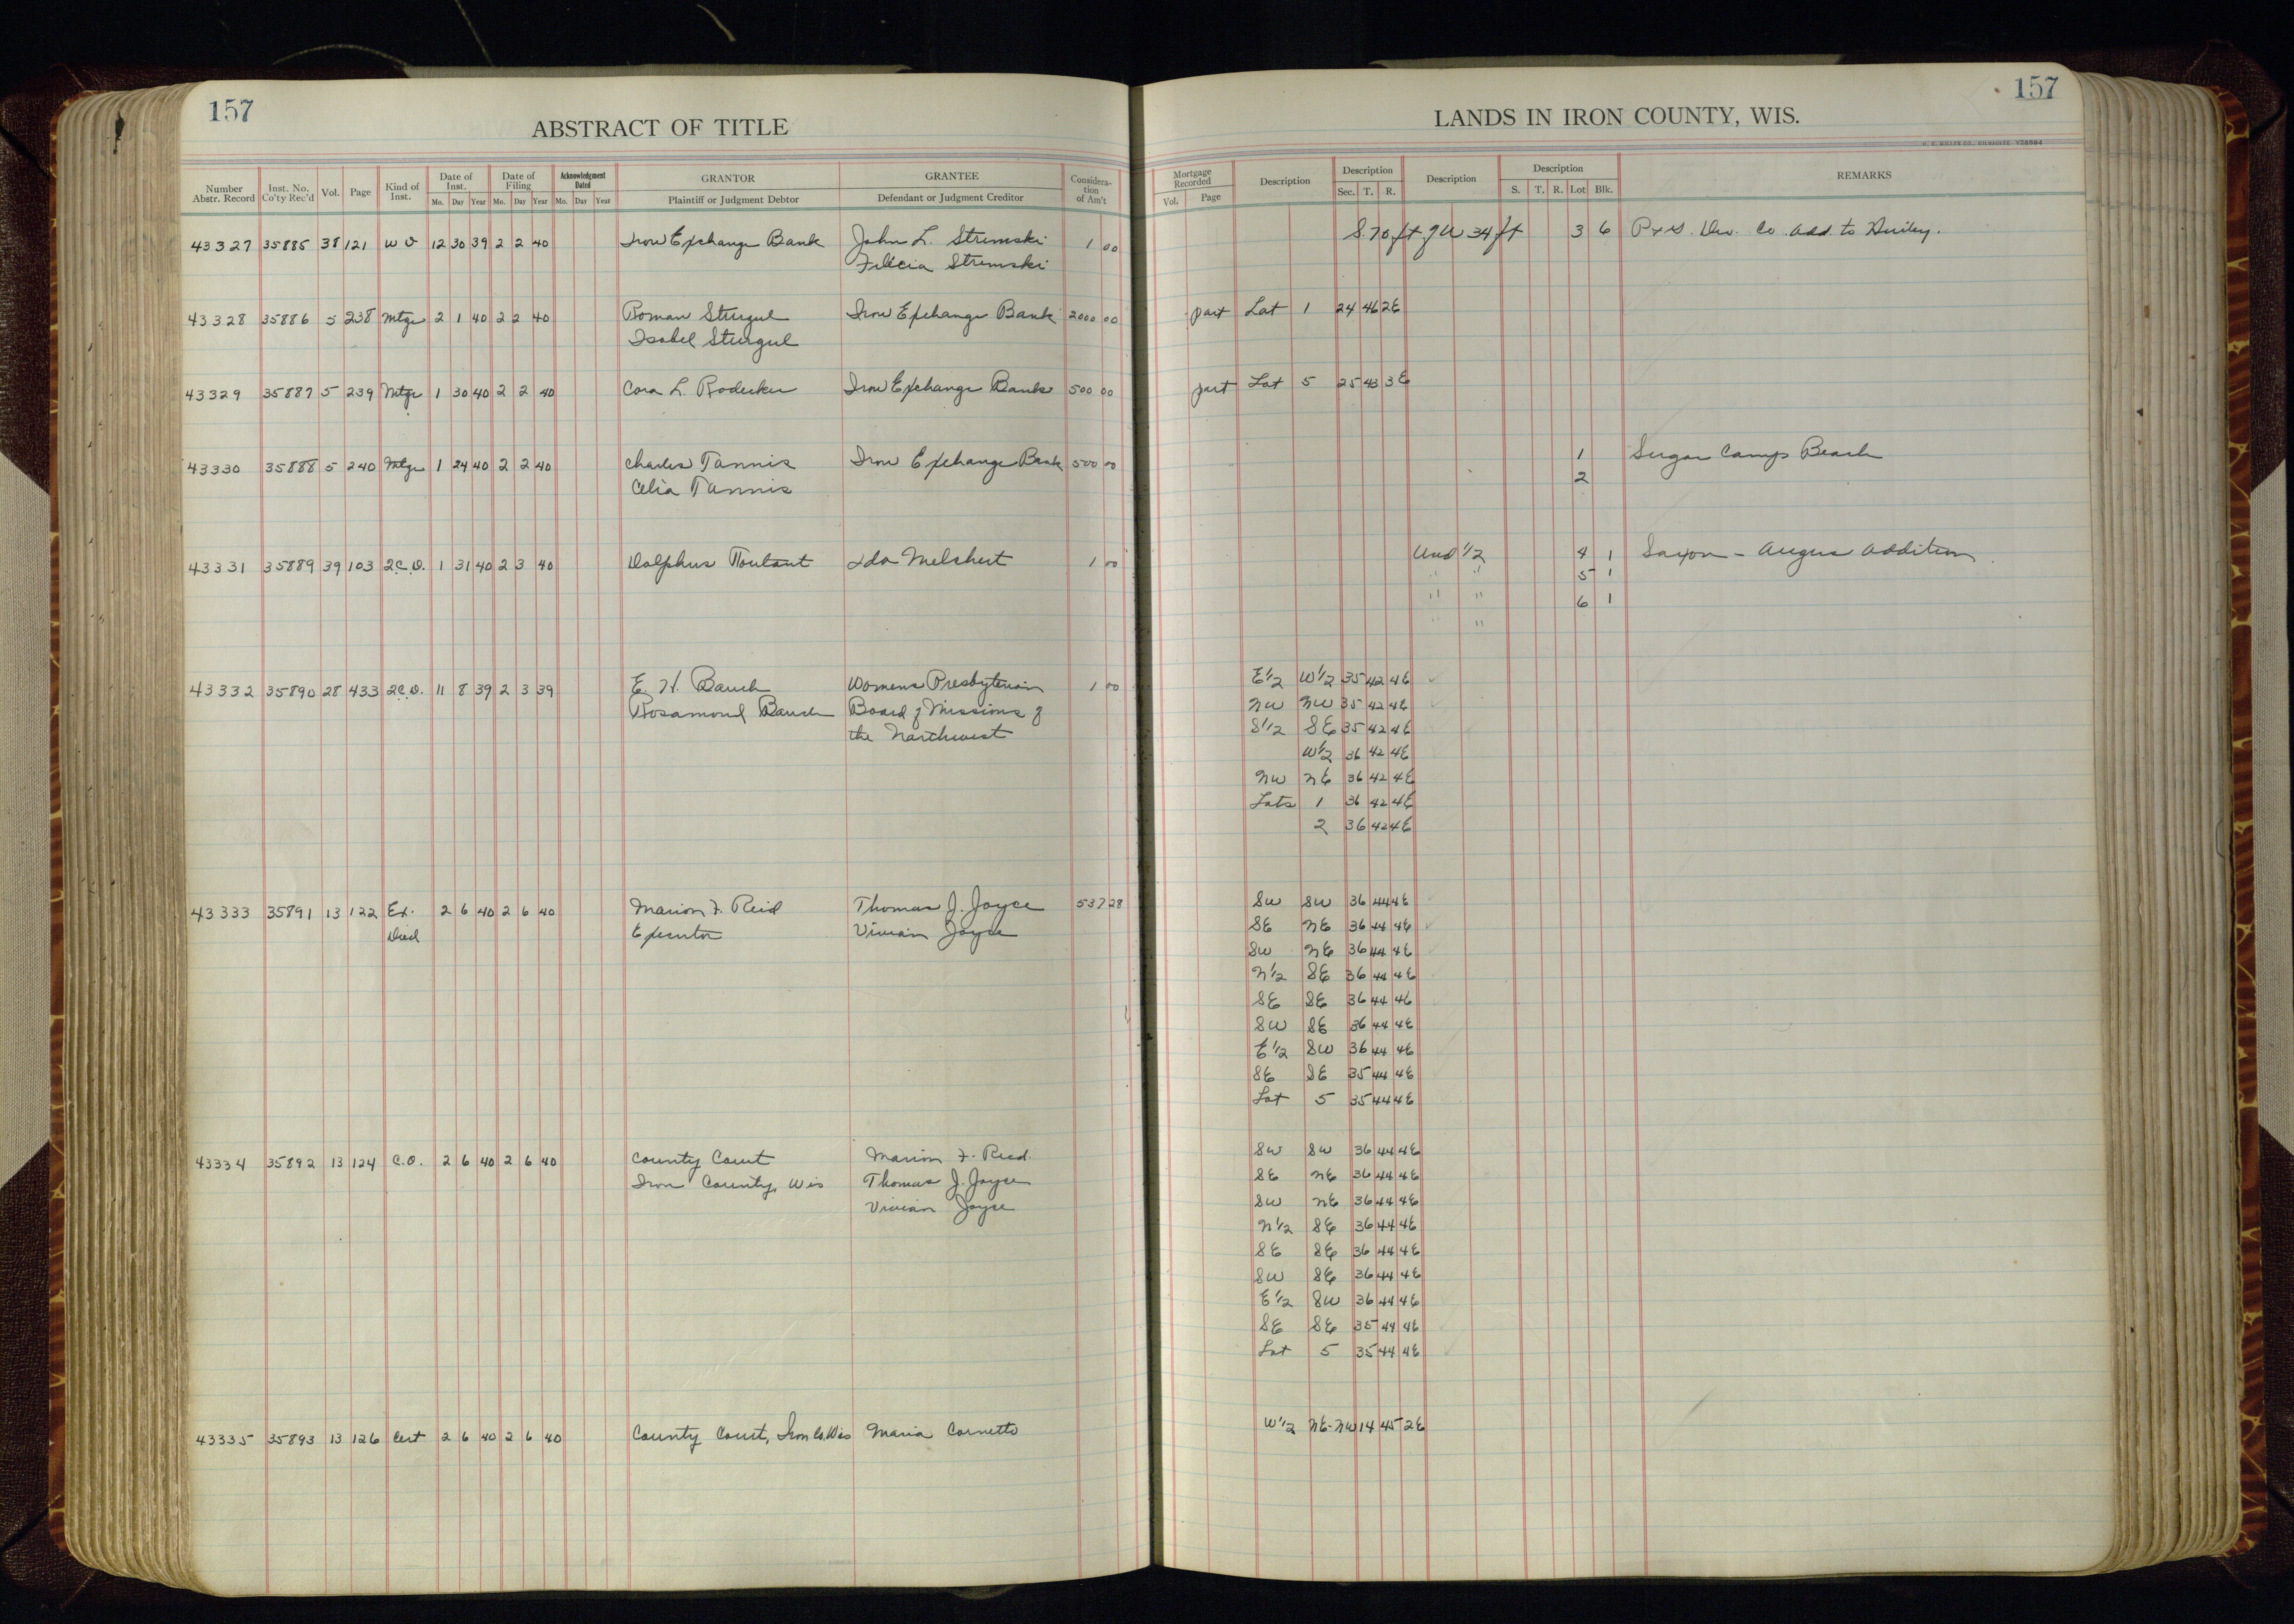 157
ABSTRACT OF TITLE
Number Abstr. Record Inst. No. Co'ty Rec'd Vol. Page Kind of Inst. Date of Inst. Mo. Day Year Date of Filing Mo. Day Year Acknowledgment Dated Mo. Day Year GRANTOR Plaintiff or Judgment Debtor GRANTEE Defendant or Judgment Creditor Consideration of Am't
43327 35885 38 121 W D 12 30 39 2 2 40 Iron Exchange Bank John L. Stremski 1 00
Felicia Stremski
43328 35886 5 238 Mtge 2 1 40 2 2 40 Roman Sturgul Iron Exchange Bank 2000 00
Isabel Sturgul
43329 35887 5 239 Mtge 1 30 40 2 2 40 Cora L. Rodecker Iron Exchange Bank 500 00
43330 35888 5 240 Mtge 1 24 40 2 2 40 Charles Tannis Iron Exchange Bank 500 00
Celia Tannis
43331 35889 39 103 2C.D. 1 31 40 2 3 40 Dolphus Toutant Ida Melchert 1 00
43332 35890 28 433 2C.D. 11 8 39 2 3 39 E. H. Bauch Womens Presbyterian 1 00
Rosamond Bauch Board of Missions of
the Northwest
43333 35891 13 122 Ex. 2 6 40 2 6 40 Marion F. Reid Thomas J. Joyce 537 28
Deed Executor Vivian Joyce
43334 35892 13 124 C.O. 2 6 40 2 6 40 County Court Marion F. Reid
Iron County, Wis Thomas J. Joyce
Vivian Joyce
43335 35893 13 126 Cert 2 6 40 2 6 40 County Court, Iron Co. Wis Maria Cornetto
157
LANDS IN IRON COUNTY, WIS.
H. C. MILLER CO., MILWAUKEE
Mortgage Recorded Vol. Page Description Description Sec. T. R. Description Description S. T. R. Lot Blk. REMARKS
S. 70 ft of W 34 ft 3 6 P & S. Dev. Co. Add. to Hurley.
part Lot 1 24 46 2E
part Lot 5 25 43 3E
1 Sugar Camp Beach
2
Und 1/2 4 1 Saxon - Angus Addition
" " 5 1
" " 6 1
" "
E1/2 W1/2 35 42 4E
NW NW 35 42 4E
S1/2 SE 35 42 4E
W1/2 36 42 4E
NW NE 36 42 4E
Lots 1 36 42 4E
2 36 42 4E
SW SW 36 44 4E
SE NE 36 44 4E
SW NE 36 44 4E
N1/2 SE 36 44 4E
SE SE 36 44 4E
SW SE 36 44 4E
E1/2 SW 36 44 4E
SE SE 35 44 4E
Lot 5 35 44 4E
SW SW 36 44 4E
SE NE 36 44 4E
SW NE 36 44 4E
N1/2 SE 36 44 4E
SE SE 36 44 4E
SW SE 36 44 4E
E1/2 SW 36 44 4E
SE SE 35 44 4E
Lot 5 35 44 4E
W1/2 NE-NW 14 45 2E